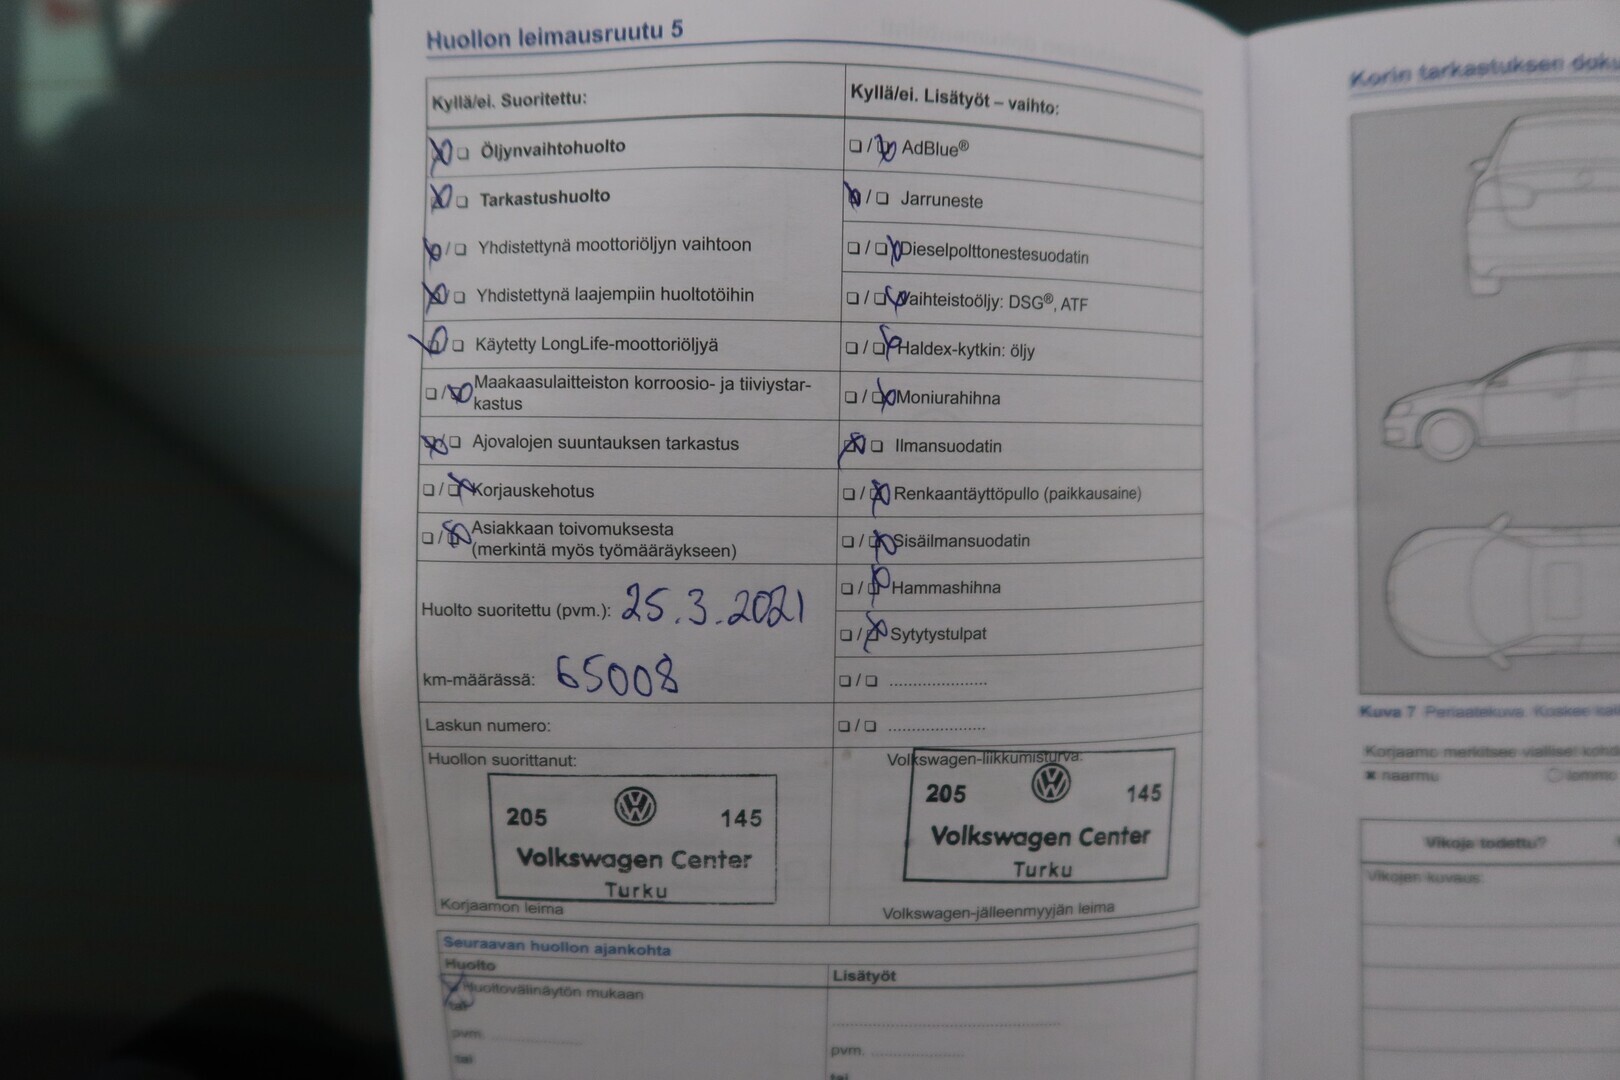 Huollon leimausruutu 5
Kyllä/ei. Suoritettu:
☒ ❏ Öljynvaihtohuolto
☒ ❏ Tarkastushuolto
☒ / ❏ Yhdistettynä moottoriöljyn vaihtoon
☒ ❏ Yhdistettynä laajempiin huoltotöihin
☒ ❏ Käytetty LongLife-moottoriöljyä
❏ / ☒ Maakaasulaitteiston korroosio- ja tiiviystar-
kastus
☒ ❏ Ajovalojen suuntauksen tarkastus
❏ / ☒ Korjauskehotus
❏ / ☒ Asiakkaan toivomuksesta
(merkintä myös työmääräykseen)
Huolto suoritettu (pvm.): 25.3.2021
km-määrässä: 65008
Laskun numero:
Huollon suorittanut:
205 145
Volkswagen Center
Turku
Korjaamon leima
Kyllä/ei. Lisätyöt – vaihto:
❏ / ☒ AdBlue®
☒ / ❏ Jarruneste
❏ / ☒ Dieselpolttonestesuodatin
❏ / ☒ Vaihteistoöljy: DSG®, ATF
❏ / ☒ Haldex-kytkin: öljy
❏ / ☒ Moniurahihna
☒ ❏ Ilmansuodatin
❏ / ☒ Renkaantäyttöpullo (paikkausaine)
❏ / ☒ Sisäilmansuodatin
❏ / ☒ Hammashihna
❏ / ☒ Sytytystulpat
❏ / ❏ ....................
❏ / ❏ ....................
Volkswagen-liikkumisturva:
205 145
Volkswagen Center
Turku
Volkswagen-jälleenmyyjän leima
Seuraavan huollon ajankohta
Huolto
☒ Huoltovälinäytön mukaan
tai
pvm. ....................
tai
Lisätyöt
....................
pvm. ....................
tai
Korin tarkastuksen
Kuva 7 Periaatekuva:
Korjaamo merkitsee vialliset
× naarmu
Vikoja todettu?
Vikojen kuvaus: